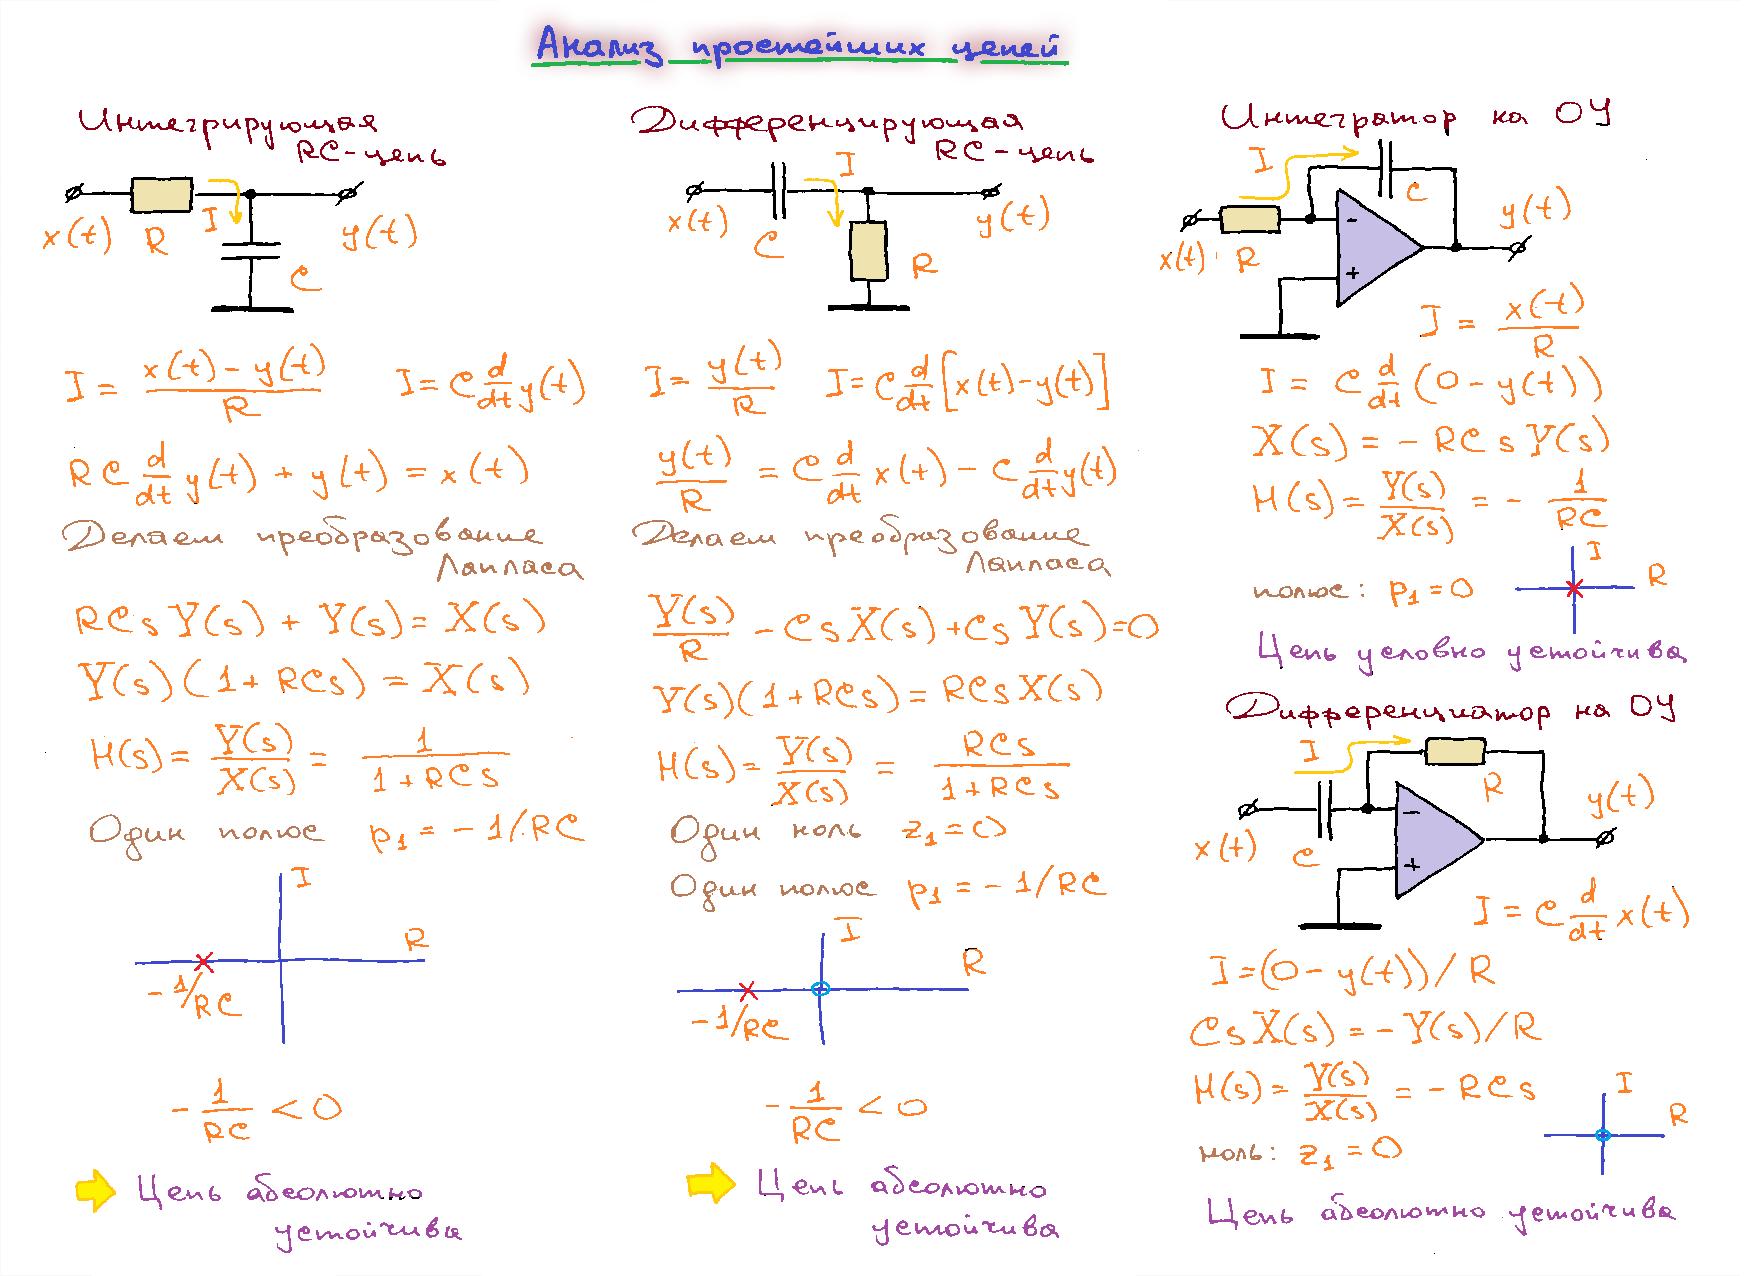 Анализ простейших цепей
Интегрирующая
RC-цепь
I
x(t) R y(t)
C
I = (x(t) - y(t))/R I = C d/dt y(t)
RC d/dt y(t) + y(t) = x(t)
Делаем преобразование
Лапласа
RCsY(s) + Y(s) = X(s)
Y(s)(1+RCs) = X(s)
H(s) = Y(s)/X(s) = 1/(1+RCs)
Один полюс p1 = -1/RC
I
R
-1/RC
-1/RC < 0
Цепь абсолютно
устойчива
Дифференцирующая
RC-цепь
I
x(t) C y(t)
R
I = y(t)/R I = C d/dt [x(t)-y(t)]
y(t)/R = C d/dt x(t) - C d/dt y(t)
Делаем преобразование
Лапласа
Y(s)/R - CsX(s) + CsY(s) = 0
Y(s)(1+RCs) = RCsX(s)
H(s) = Y(s)/X(s) = RCs/(1+RCs)
Один ноль z1 = 0
Один полюс p1 = -1/RC
I
R
-1/RC
-1/RC < 0
Цепь абсолютно
устойчива
Интегратор на ОУ
I
C
- y(t)
x(t) R
+
I = x(t)/R
I = C d/dt (0 - y(t))
X(s) = -RCsY(s)
H(s) = Y(s)/X(s) = - 1/RC
I
полюс: p1 = 0 R
Цепь условно устойчива
Дифференциатор на ОУ
I
R
- y(t)
x(t) C
+
I = C d/dt x(t)
I = (0 - y(t))/R
CsX(s) = -Y(s)/R
H(s) = Y(s)/X(s) = -RCs
I
R
ноль: z1 = 0
Цепь абсолютно устойчива